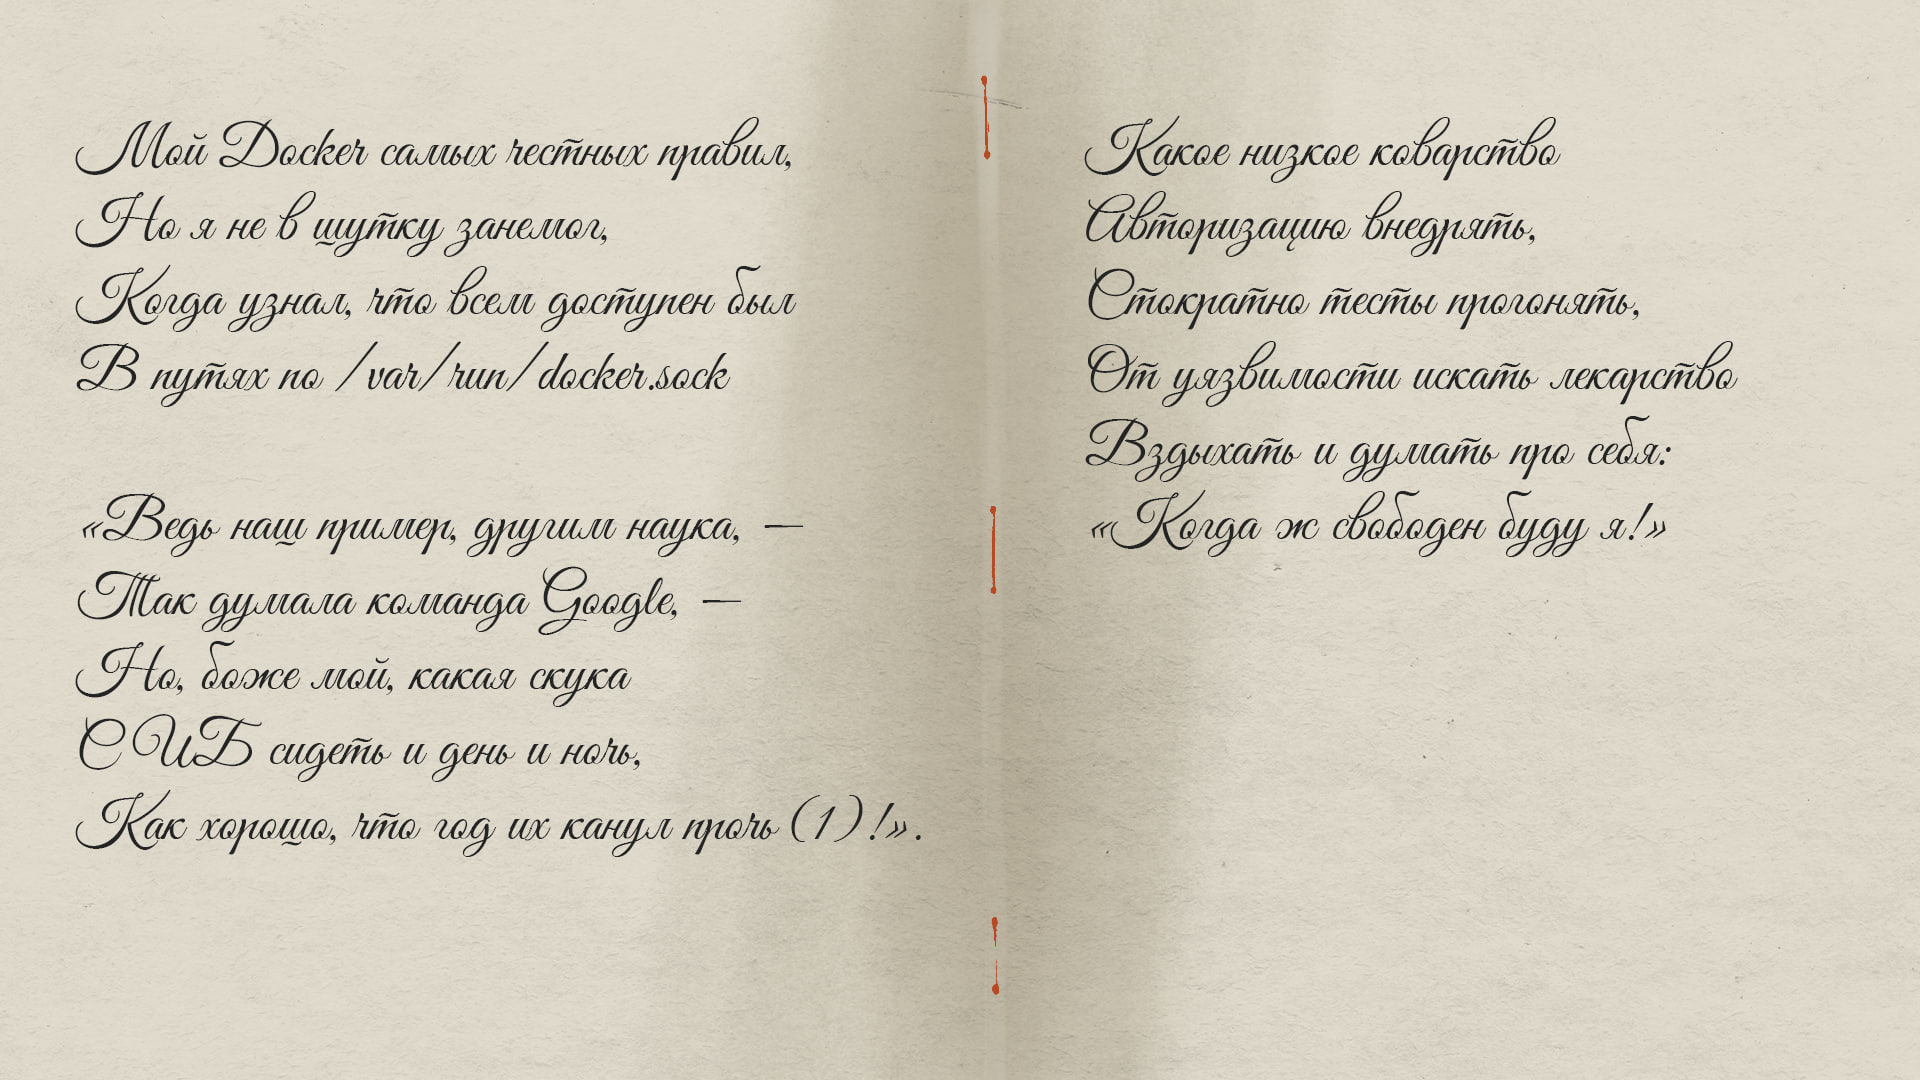 Мой Docker самых честных правил,
Но я не в шутку занемог,
Когда узнал, что всем доступен был
В путях по /var/run/docker.sock
«Ведь наш пример, другим наука, —
Так думала команда Google, —
Но, боже мой, какая скука
С ИБ сидеть и день и ночь,
Как хорошо, что год их канул прочь (1)!».
Какое низкое коварство
Авторизацию внедрять,
Стократно тесты прогонять,
От уязвимости искать лекарство
Вздыхать и думать про себя:
«Когда ж свободен буду я!»